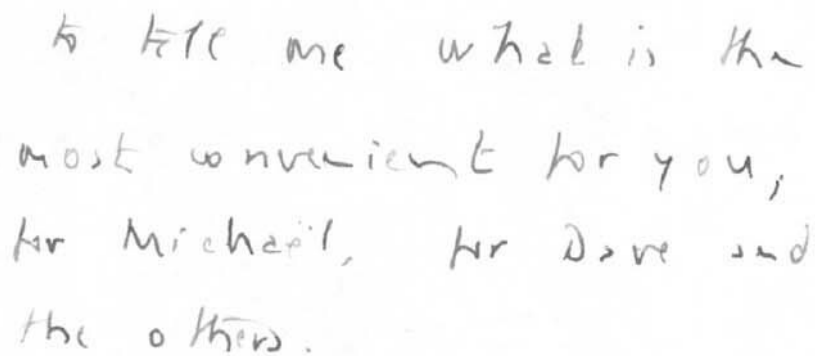 to tell me what is the
most convenient for you,
for Michaël, for Dave and
the others.